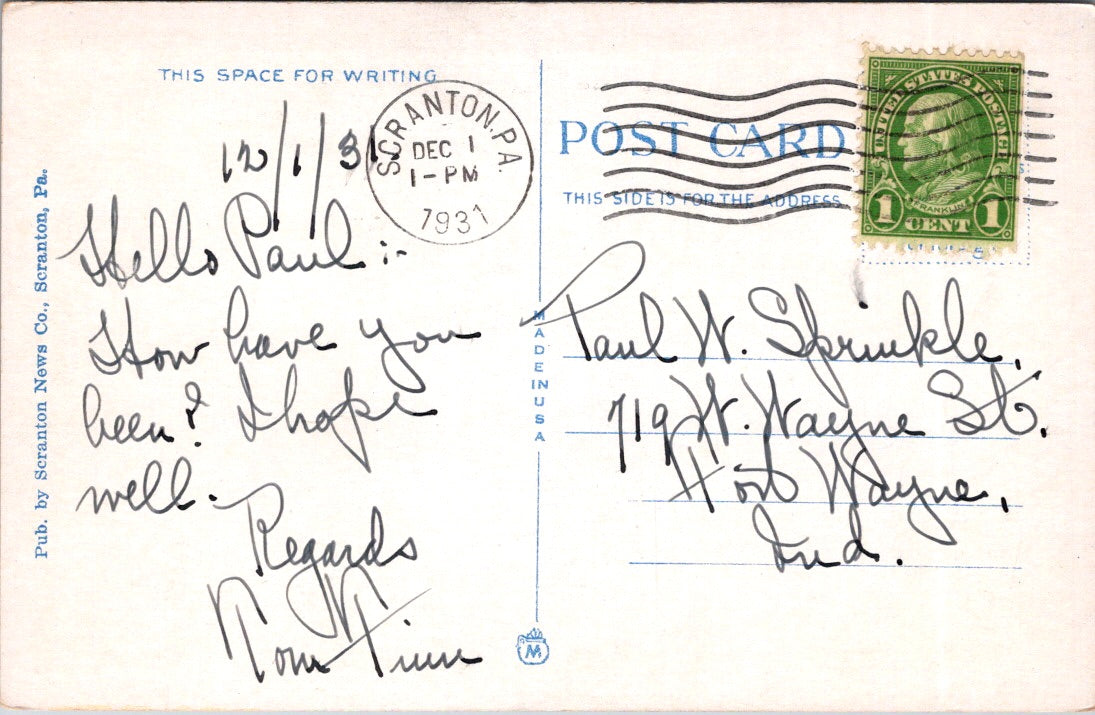 THIS SPACE FOR WRITING
12/1/31
Hello Paul :-
How have you
been? I hope
well.
Regards
Tom
Pub. by Scranton News Co., Scranton, Pa.
SCRANTON, PA.
DEC 1
1-PM
1931
MADE IN USA
M
POST CARD
THIS SIDE IS FOR THE ADDRESS
UNITED STATES POSTAGE
FRANKLIN
1 CENT 1
Paul W. Sprinkle,
719 W. Wayne St.
Fort Wayne,
Ind.